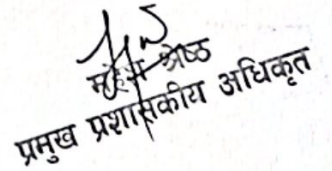 महेश श्रेष्ठ
प्रमुख प्रशासकीय अधिकृत